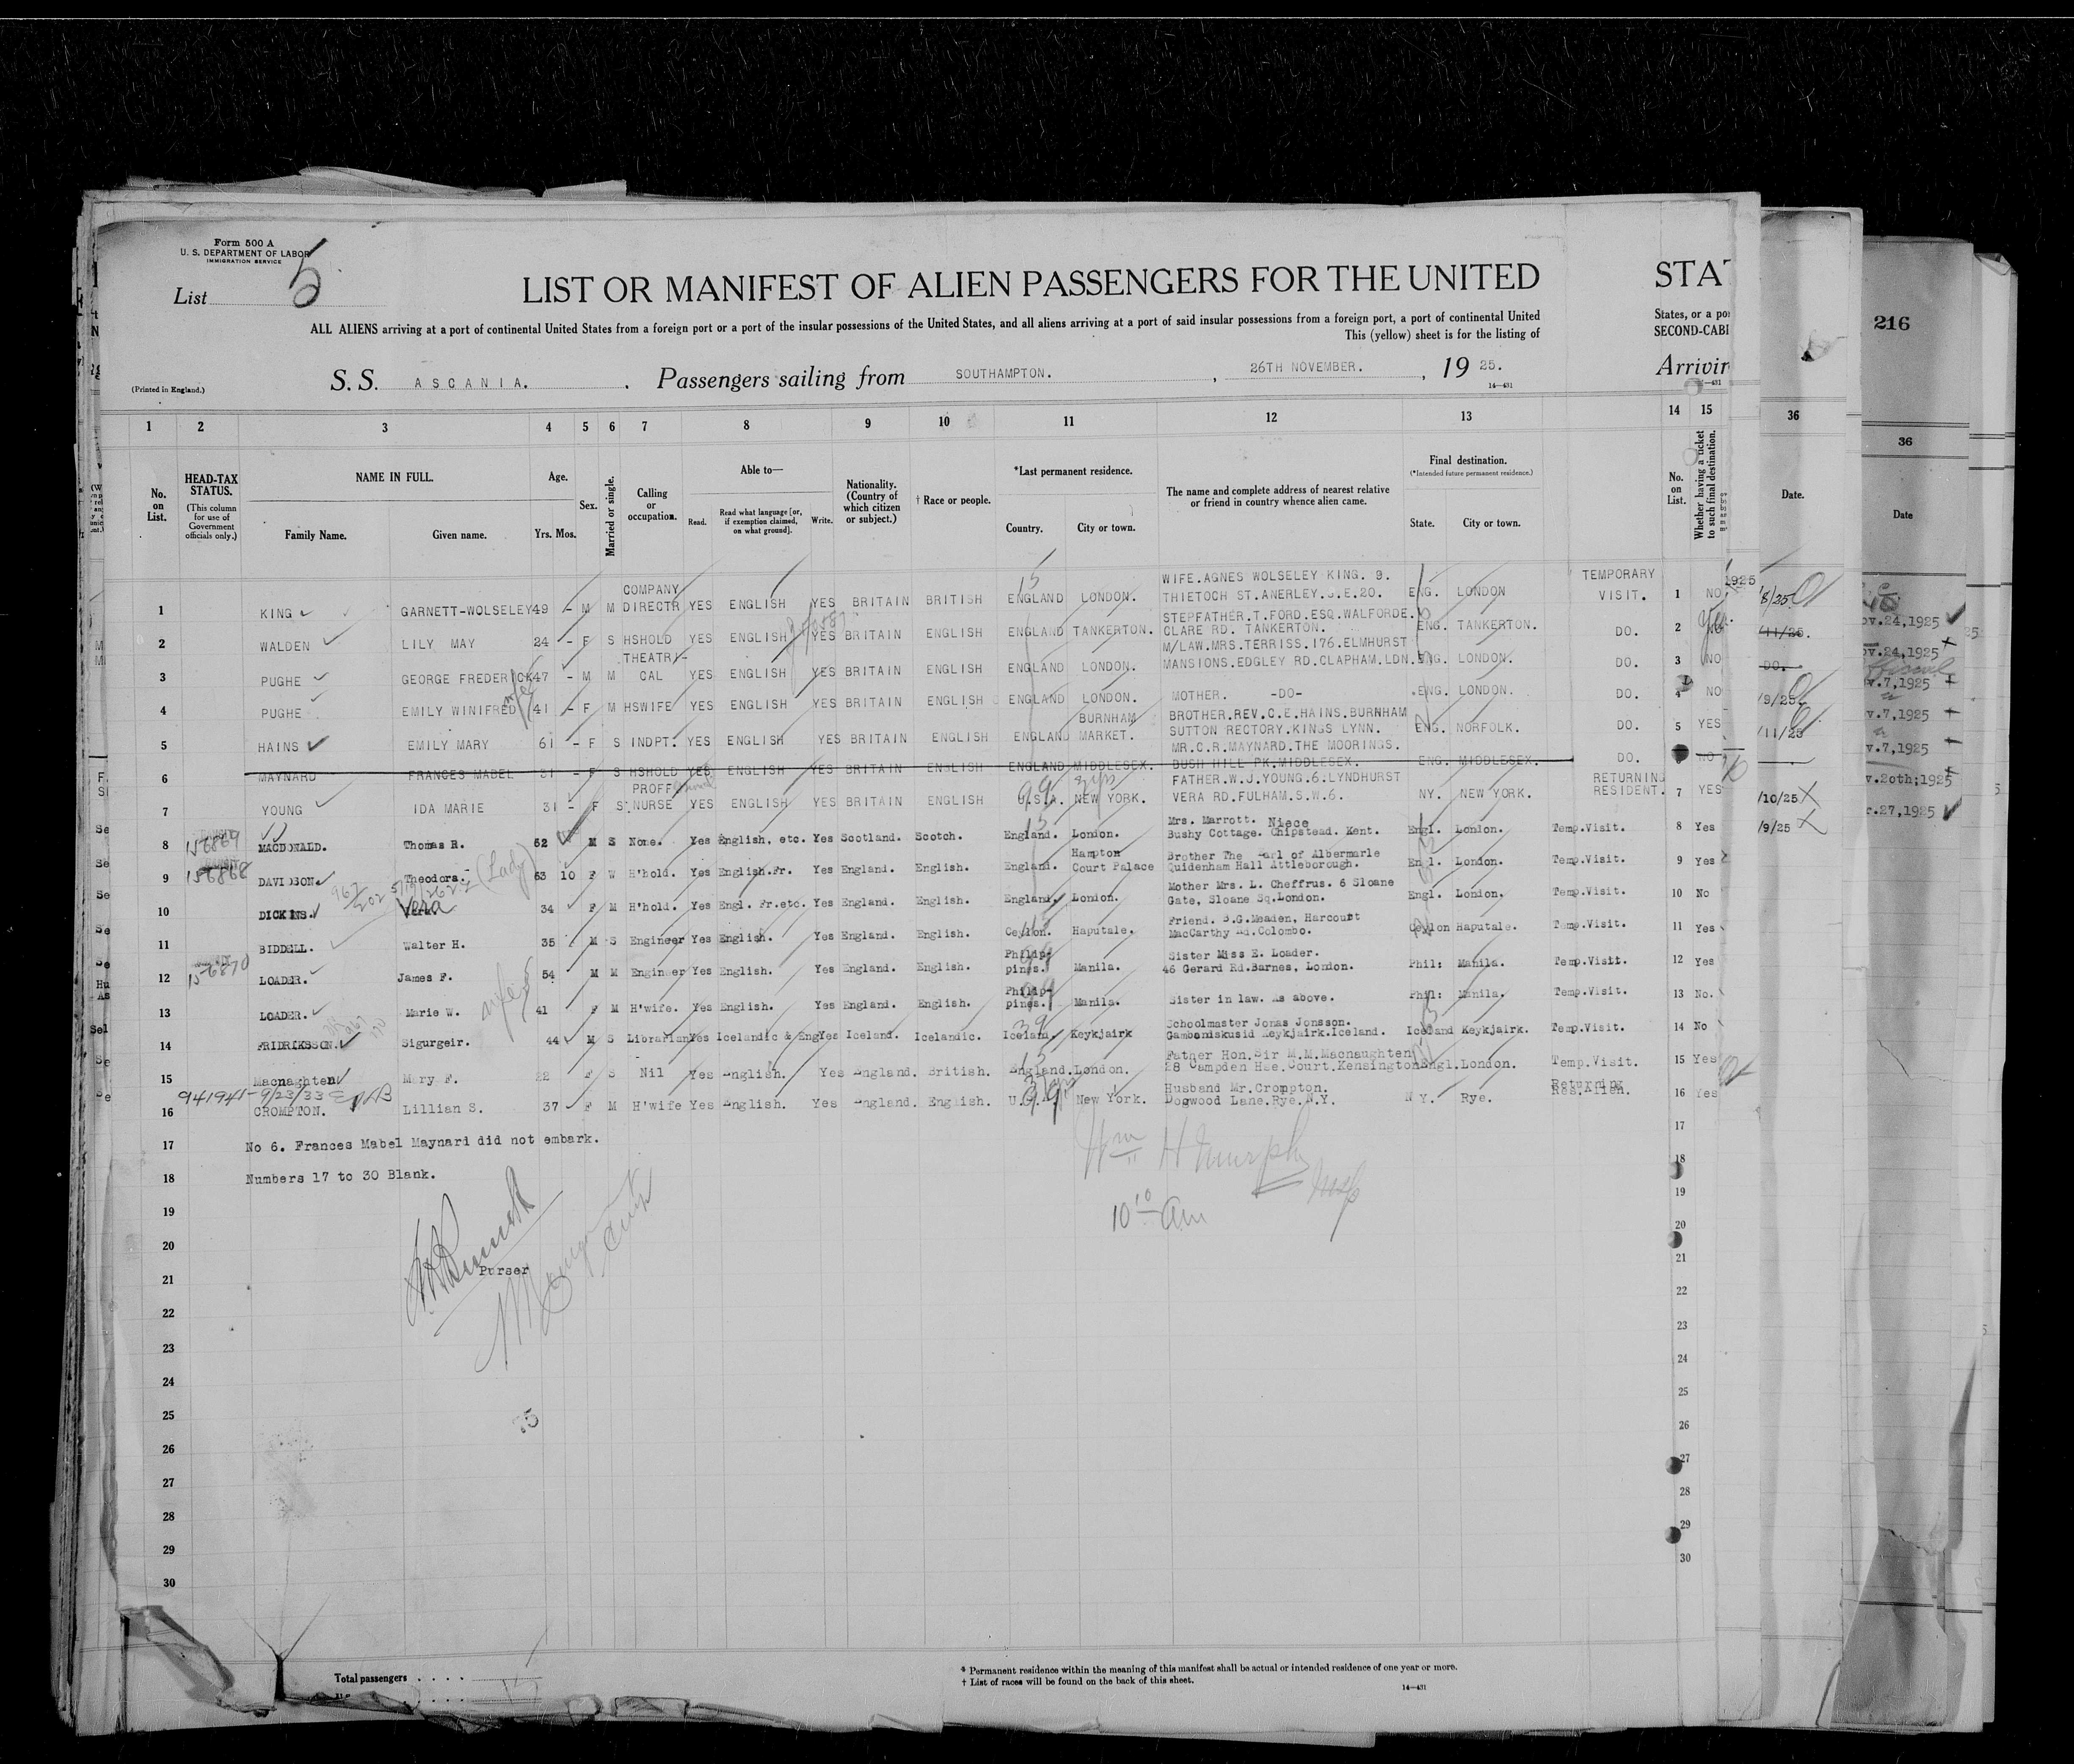 Form 500 A
U. S. DEPARTMENT OF LABOR
IMMIGRATION SERVICE
List 5
LIST OR MANIFEST OF ALIEN PASSENGERS FOR THE UNITED STA
ALL ALIENS arriving at a port of continental United States from a foreign port or a port of the insular possessions of the United States, and all aliens arriving at a port of said insular possessions from a foreign port, a port of continental United States, or a po
This (yellow) sheet is for the listing of SECOND-CABI
(Printed in England.)
S.S. ASCANIA. Passengers sailing from SOUTHAMPTON. , 26TH NOVEMBER. , 19 25. Arrivin
14—431
216
1 2 3 4 5 6 7 8 9 10 11 12 13 14 15 36 36
No. on List.
HEAD-TAX STATUS. (This column for use of Government officials only.)
NAME IN FULL.
Family Name. Given name.
Age. Yrs. Mos.
Sex.
Married or single.
Calling or occupation.
Able to—
Read. Read what language [or, if exemption claimed, on what ground]. Write.
Nationality. (Country of which citizen or subject.)
† Race or people.
*Last permanent residence.
Country. City or town.
The name and complete address of nearest relative or friend in country whence alien came.
Final destination.
(*Intended future permanent residence.)
State. City or town.
No. on List.
Whether having a ticket to such final destination.
Date. Date
1 KING GARNETT-WOLSELEY 49 - M M COMPANY DIRECTR YES ENGLISH YES BRITAIN BRITISH ENGLAND LONDON. WIFE.AGNES WOLSELEY KING. 9. THIETOCH ST.ANERLEY.S.E.20. ENG. LONDON TEMPORARY VISIT. 1 NO
2 WALDEN LILY MAY 24 - F S HSHOLD YES ENGLISH YES BRITAIN ENGLISH ENGLAND TANKERTON. STEPFATHER.T.FORD.ESQ.WALFORDE. CLARE RD. TANKERTON. ENG. TANKERTON. DO. 2
3 PUGHE GEORGE FREDERICK 47 - M M THEATRI-CAL YES ENGLISH YES BRITAIN ENGLISH ENGLAND LONDON. M/LAW.MRS.TERRISS.176.ELMHURST MANSIONS.EDGLEY RD.CLAPHAM.LDN. ENG. LONDON. DO. 3 NO
4 PUGHE EMILY WINIFRED wife 41 - F M HSWIFE YES ENGLISH YES BRITAIN ENGLISH ENGLAND LONDON. MOTHER. -DO- ENG. LONDON. DO. 4 NO
5 HAINS EMILY MARY 61 - F S INDPT. YES ENGLISH YES BRITAIN ENGLISH ENGLAND BURNHAM MARKET. BROTHER.REV.C.E.HAINS.BURNHAM SUTTON RECTORY.KINGS LYNN. ENG. NORFOLK. DO. 5 YES
6 MAYNARD FRANCES MABEL 31 - F S HSHOLD YES ENGLISH YES BRITAIN ENGLISH ENGLAND MIDDLESEX. MR.C.R.MAYNARD.THE MOORINGS. BUSH HILL PK.MIDDLESEX. ENG. MIDDLESEX. DO. NO
7 YOUNG IDA MARIE 31 - F S PROFF NURSE YES ENGLISH YES BRITAIN ENGLISH U.S.A. NEW YORK. FATHER.W.J.YOUNG.6.LYNDHURST VERA RD.FULHAM.S.W.6. NY. NEW YORK. RETURNING RESIDENT. 7 YES
8 156869 MACDONALD. Thomas R. 62 M S None. Yes English, etc. Yes Scotland. Scotch. England. London. Mrs. Marrott. Niece Bushy Cottage. Chipstead. Kent. Engl. London. Temp.Visit. 8 Yes
9 156868 DAVIDSON. Theodora. (Lady) 63 10 F W H'hold. Yes English.Fr. Yes England. English. England. Hampton Court Palace Brother The Earl of Albermarle Quidenham Hall Attleborough. Engl. London. Temp.Visit. 9 Yes
10 DICKINS. Vera 34 F M H'hold. Yes Engl. Fr.etc. Yes England. English. England. London. Mother Mrs. L. Cheffrus. 6 Sloane Gate, Sloane Sq.London. Engl. London. Temp.Visit. 10 No
11 BIDDELL. Walter H. 35 M S Engineer Yes English. Yes England. English. Ceylon. Haputale. Friend. B.G.Meaden, Harcourt MacCarthy Rd.Colombo. Ceylon Haputale. Temp.Visit. 11 Yes
12 156870 LOADER. James F. 54 M M Engineer Yes English. Yes England. English. Philip-pines. Manila. Sister Miss E. Loader. 46 Gerard Rd.Barnes, London. Phil: Manila. Temp.Visit. 12 Yes
13 LOADER. Marie W. wife 41 F M H'wife. Yes English. Yes England. English. Philip-pines. Manila. Sister in law. As above. Phil: Manila. Temp.Visit. 13 No.
14 FRIDRIKSSON. Sigurgeir. 44 M S Librarian Yes Icelandic & Eng Yes Iceland. Icelandic. Iceland. Keykjairk Schoolmaster Jonas Jonsson. Gamboniskusid Reykjairk.Iceland. Iceland Keykjairk. Temp.Visit. 14 No
15 Macnaghten Mary F. 22 F S Nil Yes English. Yes England. British. England. London. Father Hon.Sir M.M.Macnaughten 28 Campden Hse.Court.Kensington Engl. London. Temp.Visit. 15 Yes
941941-9/23/33
16 CROMPTON. Lillian S. 37 F M H'wife Yes English. Yes England. English. New York. Husband Mr.Crompton. Dogwood Lane.Rye.N.Y. N Y. Rye. Returning Res.Alien. 16 Yes
17 No 6. Frances Mabel Maynard did not embark. 17
18 Numbers 17 to 30 Blank. 18
Wm H Murphy Insp
10 10 am
19 19
20 20
Purser
21 21
22 22
23 23
24 24
25 25
26 26
27 27
28 28
29 29
30 30
Total passengers . . . .
* Permanent residence within the meaning of this manifest shall be actual or intended residence of one year or more.
† List of races will be found on the back of this sheet.
14—431